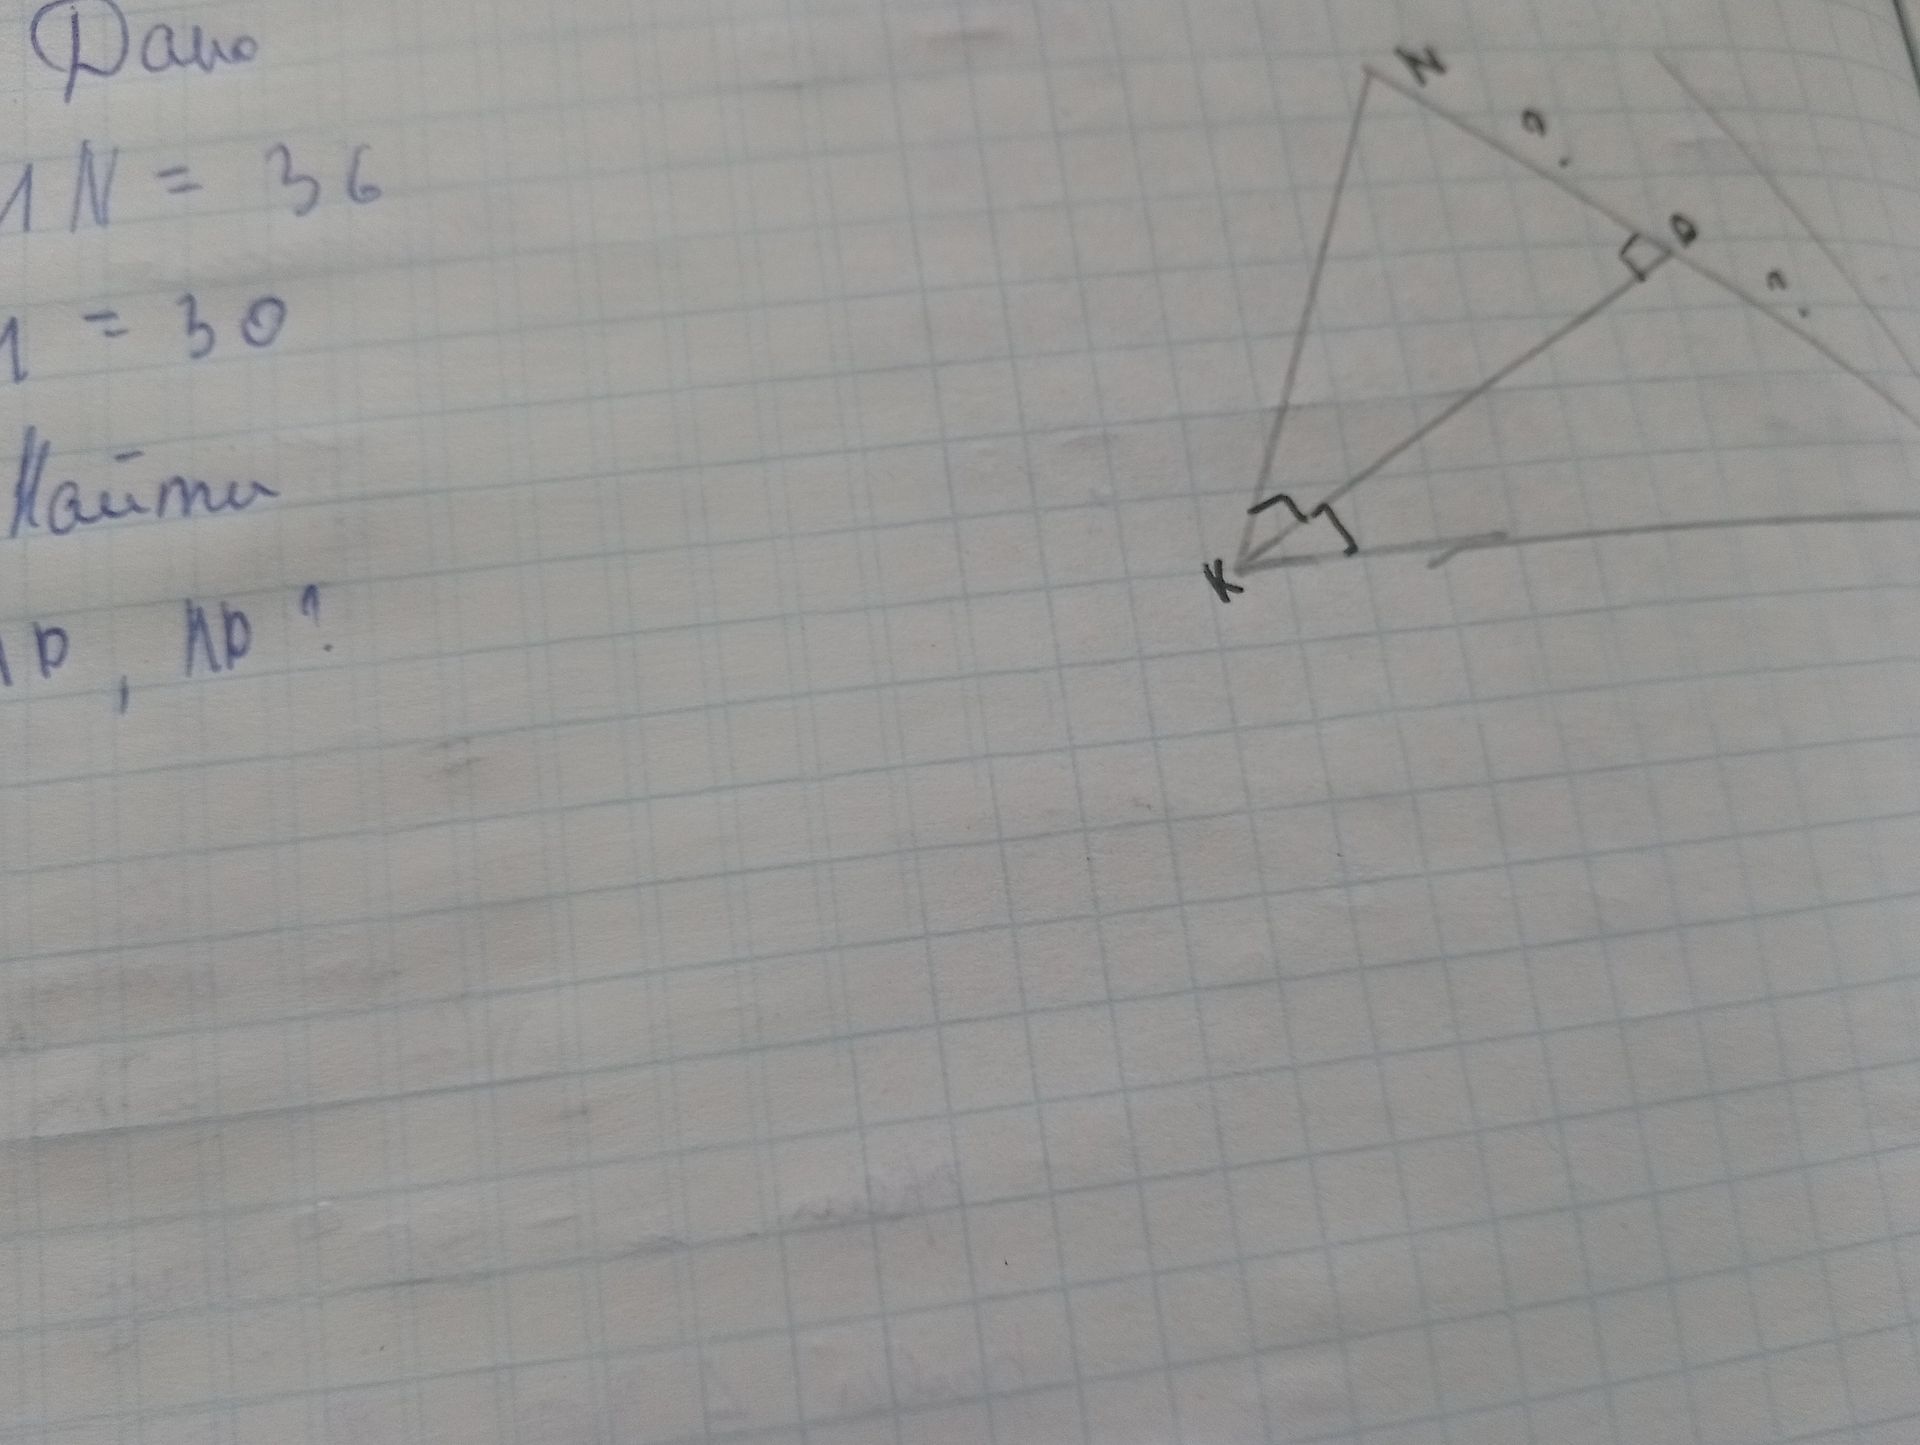 Дано
MN = 36
= 30
Найти
D, ND ?
N
?
D
?
K